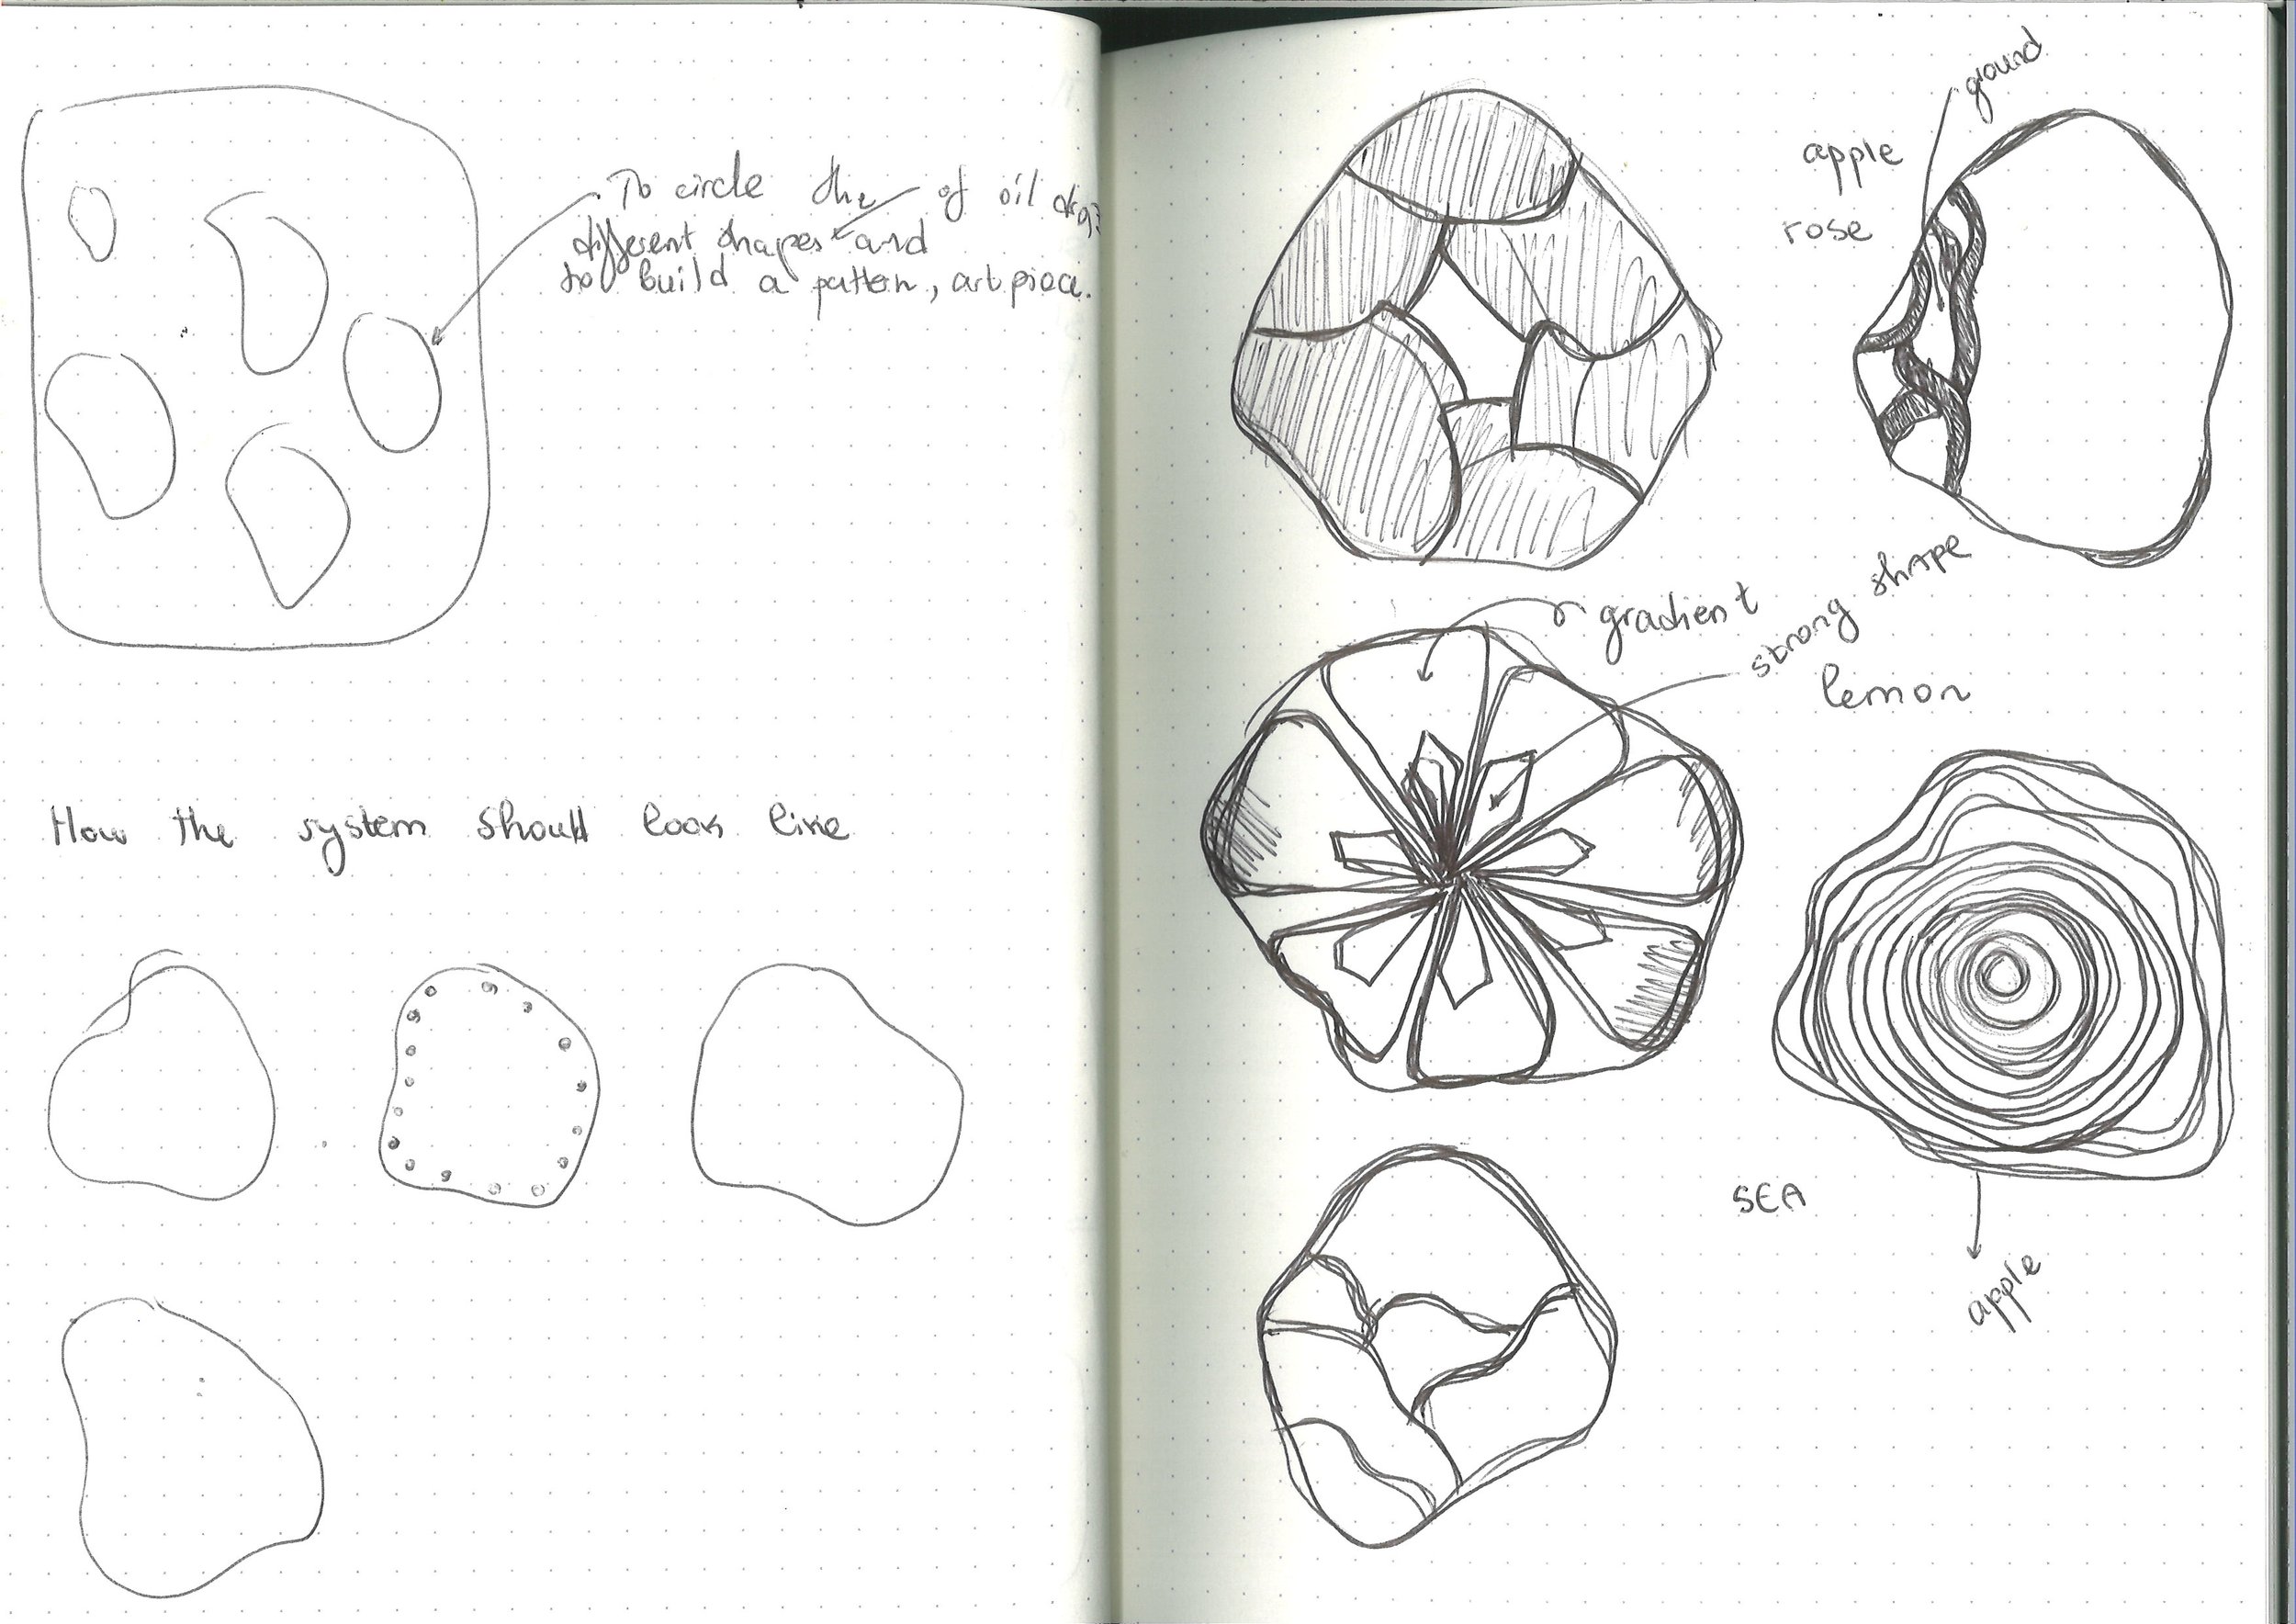 To circle the of oil
different shapes and
to build a pattern, art piece.
How the system should look like
ground
apple
rose
gradient
strong shape
lemon
SEA
apple